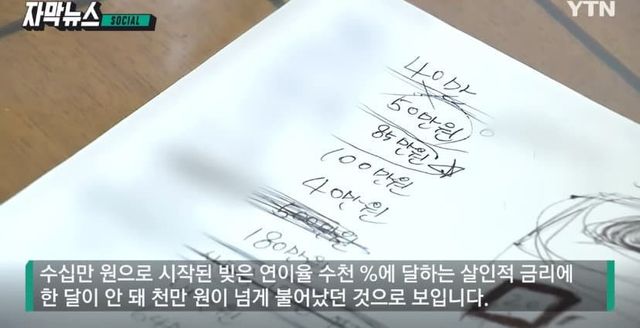 자막뉴스
SOCIAL
YTN
40만
50만원
85만원
100만원
40만원
500만원
180만원
수십만 원으로 시작된 빚은 연이율 수천 %에 달하는 살인적 금리에
한 달이 안 돼 천만 원이 넘게 불어났던 것으로 보입니다.